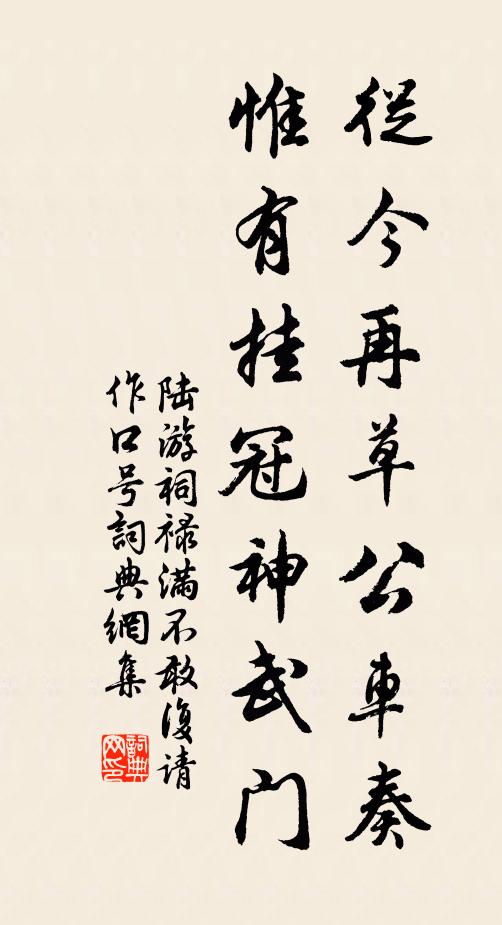 從今再草公車奏
惟有挂冠神武門
陆游祠禄满不敢復请
作口号詞典網集
詞典网印